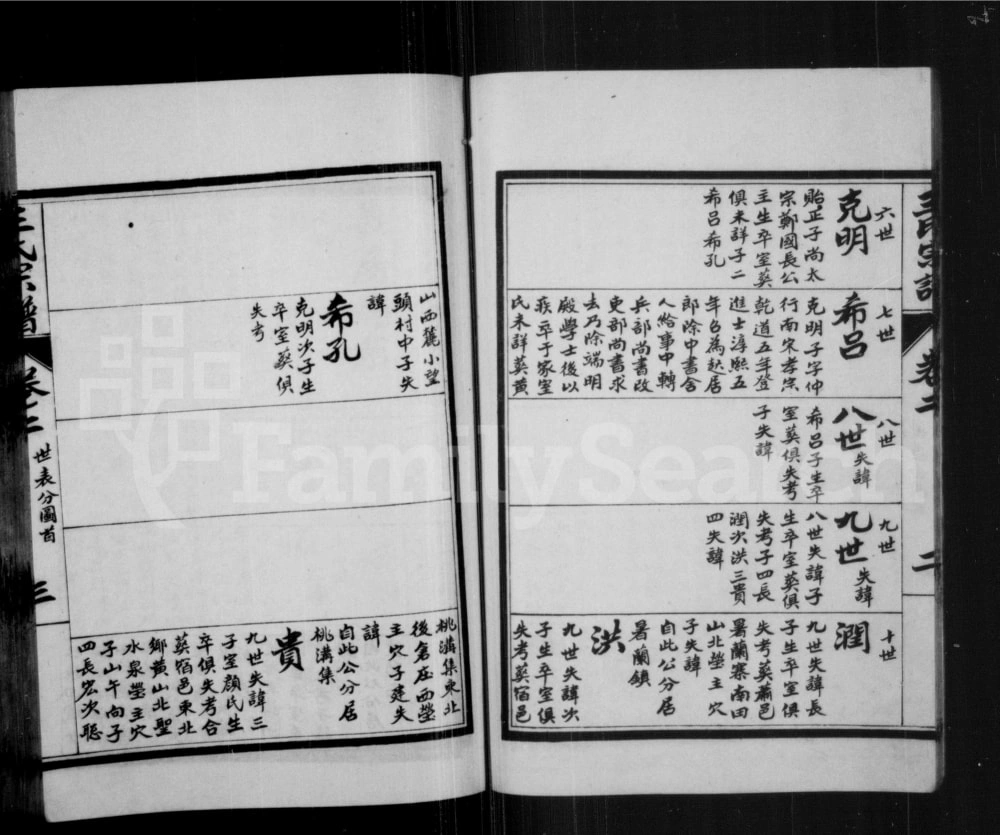 王氏宗譜
卷二
二
六世
克明
貽正子尚太
宗鄭國長公
主生卒室葬
俱未詳子二
希呂希孔
七世
希呂
克明子字仲
行南宋孝宗
乾道五年登
進士淳熙五
年召為起居
郎除中書舍
人給事中轉
兵部尚書改
吏部尚書求
去乃除端明
殿學士後以
疾卒于家室
氏未詳葬黃
山西麓小望
頭村中子失
諱
希孔
克明次子生
卒室葬俱
失考
八世
八世失諱
希呂子生卒
室葬俱失考
子失諱
九世
九世失諱
八世失諱子
生卒室葬俱
失考子四長
潤次洪三貴
四失諱
十世
潤
九世失諱長
子生卒室俱
失考葬蕭邑
暑蘭寨南田
山北塋主穴
子失諱
自此公分居
暑蘭鎮
洪
九世失諱次
子生卒室俱
失考葬宿邑
桃溝集東北
後倉庄西塋
主穴子建失
諱
自此公分居
桃溝集
貴
九世失諱三
子室顏氏生
卒俱失考合
葬宿邑東北
鄉黃山北聖
水泉塋主穴
子山午向子
四長宏次聡
王氏宗譜
卷二
世表分圖首
三
FamilySearch